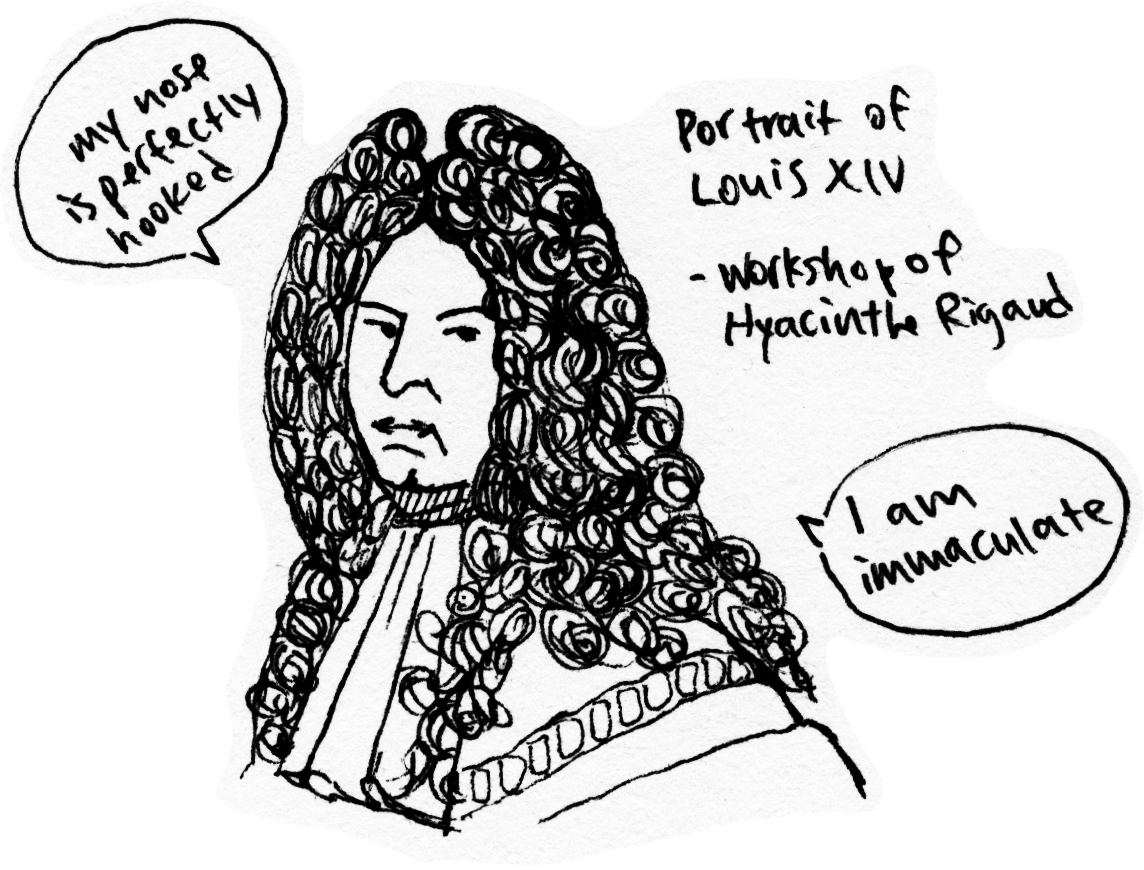 my nose
is perfectly
hooked
Portrait of
Louis XIV
- Workshop of
Hyacinthe Rigaud
I am
immaculate